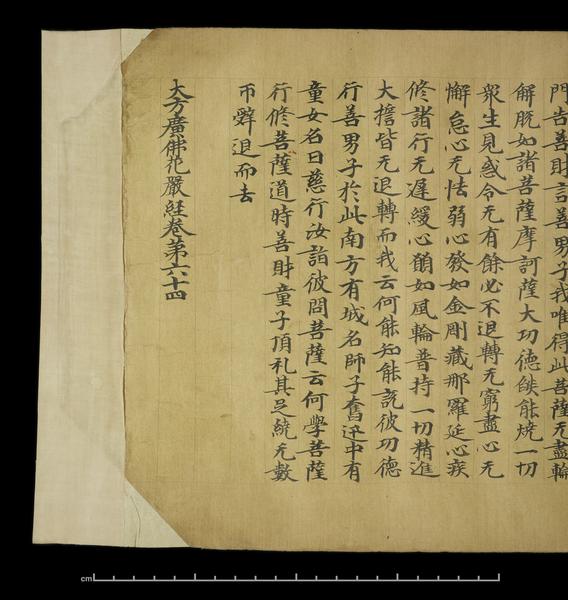 門告善財言善男子我唯得此菩薩无盡輪
解脫如諸菩薩摩訶薩大功德燄能燒一切
衆生見惑令无有餘必不退轉无窮盡心无
懈怠心无怯弱心發如金剛藏那羅延心疾
修諸行无遲緩心猶如風輪普持一切精進
大擔皆无退轉而我云何能知能說彼功德
行善男子於此南方有城名師子奮迅中有
童女名曰慈行汝詣彼問菩薩云何學菩薩
行修菩薩道時善財童子頂礼其足繞无數
帀辤退而去
大方廣佛花嚴経卷苐六十四
cm